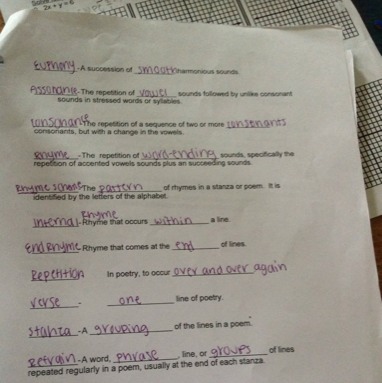 2x + y = 6
Euphony - A succession of smooth harmonious sounds.
Assonance - The repetition of vowel sounds followed by unlike consonant
sounds in stressed words or syllables.
Consonance The repetition of a sequence of two or more consonants
consonants, but with a change in the vowels.
Rhyme - The repetition of word-ending sounds, specifically the
repetition of accented vowels sounds plus an succeeding sounds.
Rhyme scheme The pattern of rhymes in a stanza or poem. It is
identified by the letters of the alphabet.
Internal Rhyme - Rhyme that occurs within a line.
End Rhyme Rhyme that comes at the end of lines.
Repetition In poetry, to occur over and over again
verse - one line of poetry.
stanza - A grouping of the lines in a poem.
Refrain - A word, phrase, line, or groups of lines
repeated regularly in a poem, usually at the end of each stanza.